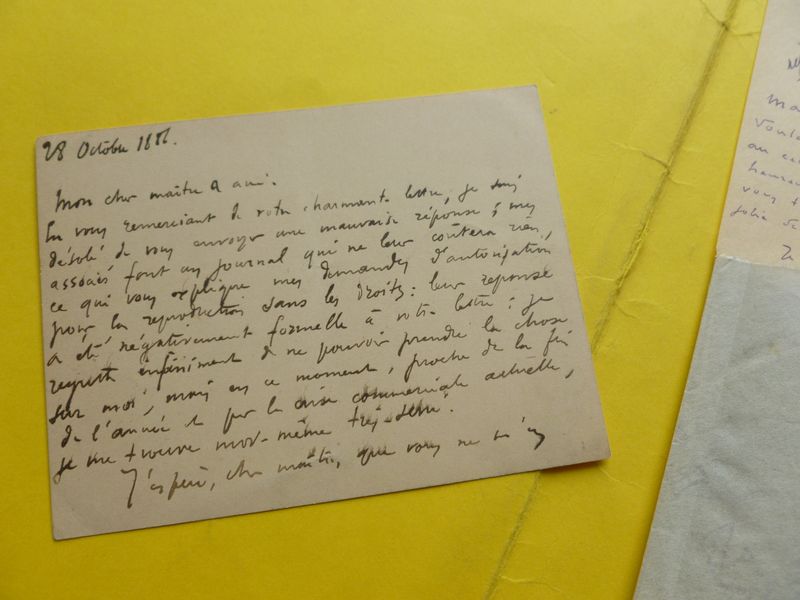 28 Octobre 1886.
Mon cher maître & ami.
En vous remerciant de votre charmante lettre, je suis
désolé de vous envoyer une mauvaise réponse ; mes
associés font un journal qui ne leur coûtera rien,
ce qui vous explique mes demandes d'autorisation
pour la reproduction sans les droits : leur réponse
a été négativement formelle à votre lettre : je
regrette infiniment de ne pouvoir prendre la chose
sur moi, mais en ce moment, proche de la fin
de l'année et par la crise commerciale actuelle,
je me trouve moi-même très-serré.
J'espère, cher maître, que vous ne m'en
vous